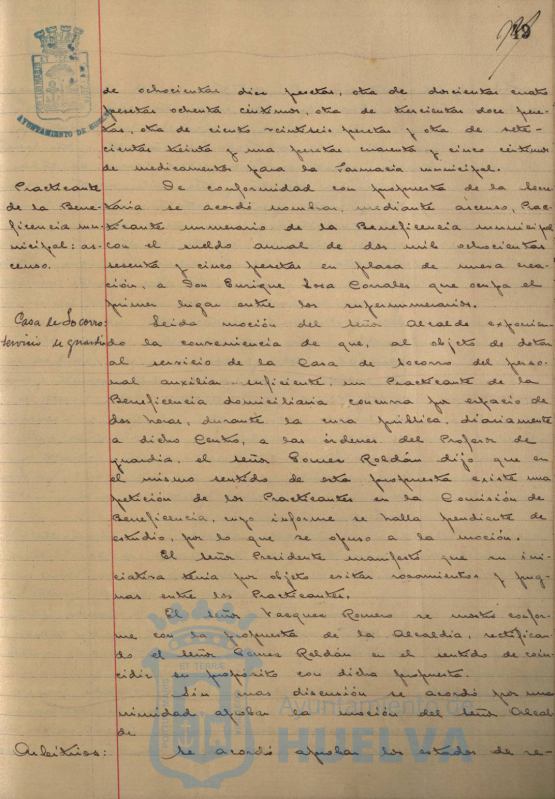 49
AYUNTAMIENTO DE HUELVA
de ochocientas diez pesetas, otra de doscientas cuatro
pesetas ochenta céntimos, otra de trescientas doce pese-
tas, otra de ciento veintiseis pesetas y otra de sete-
cientas treinta y una pesetas cuarenta y cinco céntimos
de medicamentos para la Farmacia municipal.
Practicante
de la Bene-
ficencia mu-
nicipal: as-
censo.
De conformidad con propuesta de la Secre-
taria se acordó nombrar, mediante ascenso, Prac-
ticante numerario de la Beneficencia municipal
con el sueldo anual de dos mil ochocientas
sesenta y cinco pesetas en plaza de nueva crea-
ción, a Don Enrique Sosa Corrales que ocupa el
primer lugar entre los supernumerarios.
Casa de Socorro:
servicio de guardia
Leida moción del señor Alcalde exponien-
do la conveniencia de que, al objeto de dotar
al servicio de la Casa de Socorro del perso-
nal auxiliar suficiente, un Practicante de la
Beneficencia domiciliaria concurra por espacio de
dos horas, durante la cura pública, diariamente
a dicho Centro, a las órdenes del Profesor de
guardia, el señor Gomez Roldán dijo que en
el mismo sentido de esta propuesta existe una
petición de los Practicantes en la Comisión de
Beneficencia, cuyo informe se halla pendiente de
estudio, por lo que se opuso a la moción.
El señor Presidente manifestó que su ini-
ciativa tenia por objeto evitar rozamientos y pug-
nas entre los Practicantes.
El señor Vazquez Romero se mostró confor-
me con la propuesta de la Alcaldia, rectifican-
do el señor Gomez Roldán en el sentido de coin-
cidir su propósito con dicha propuesta.
Sin mas discusión se acordó por una-
nimidad aprobar la moción del señor Alcal-
de.
Arbitrios:
Se acordó aprobar los estados de re-
Ayuntamiento de
HUELVA